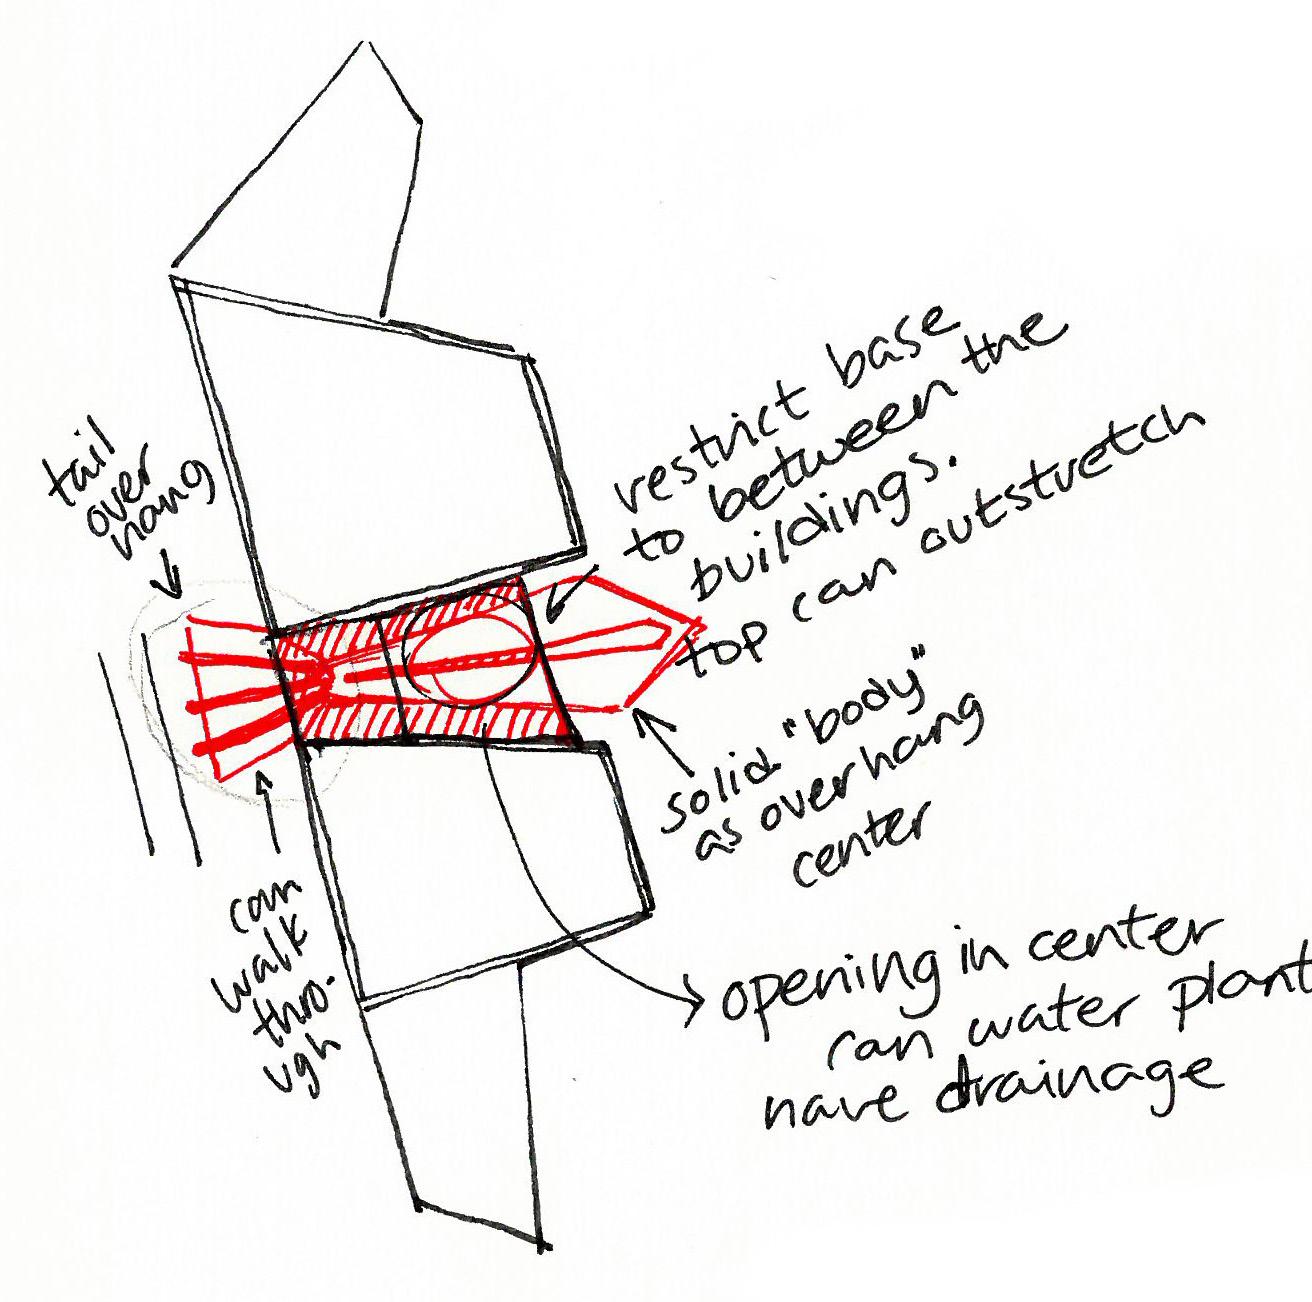 tail
over
hang
restrict base
to between the
buildings.
top can outstretch
solid "body"
as overhang
center
can
walk
thro-
ugh
opening in center
can water plant
have drainage